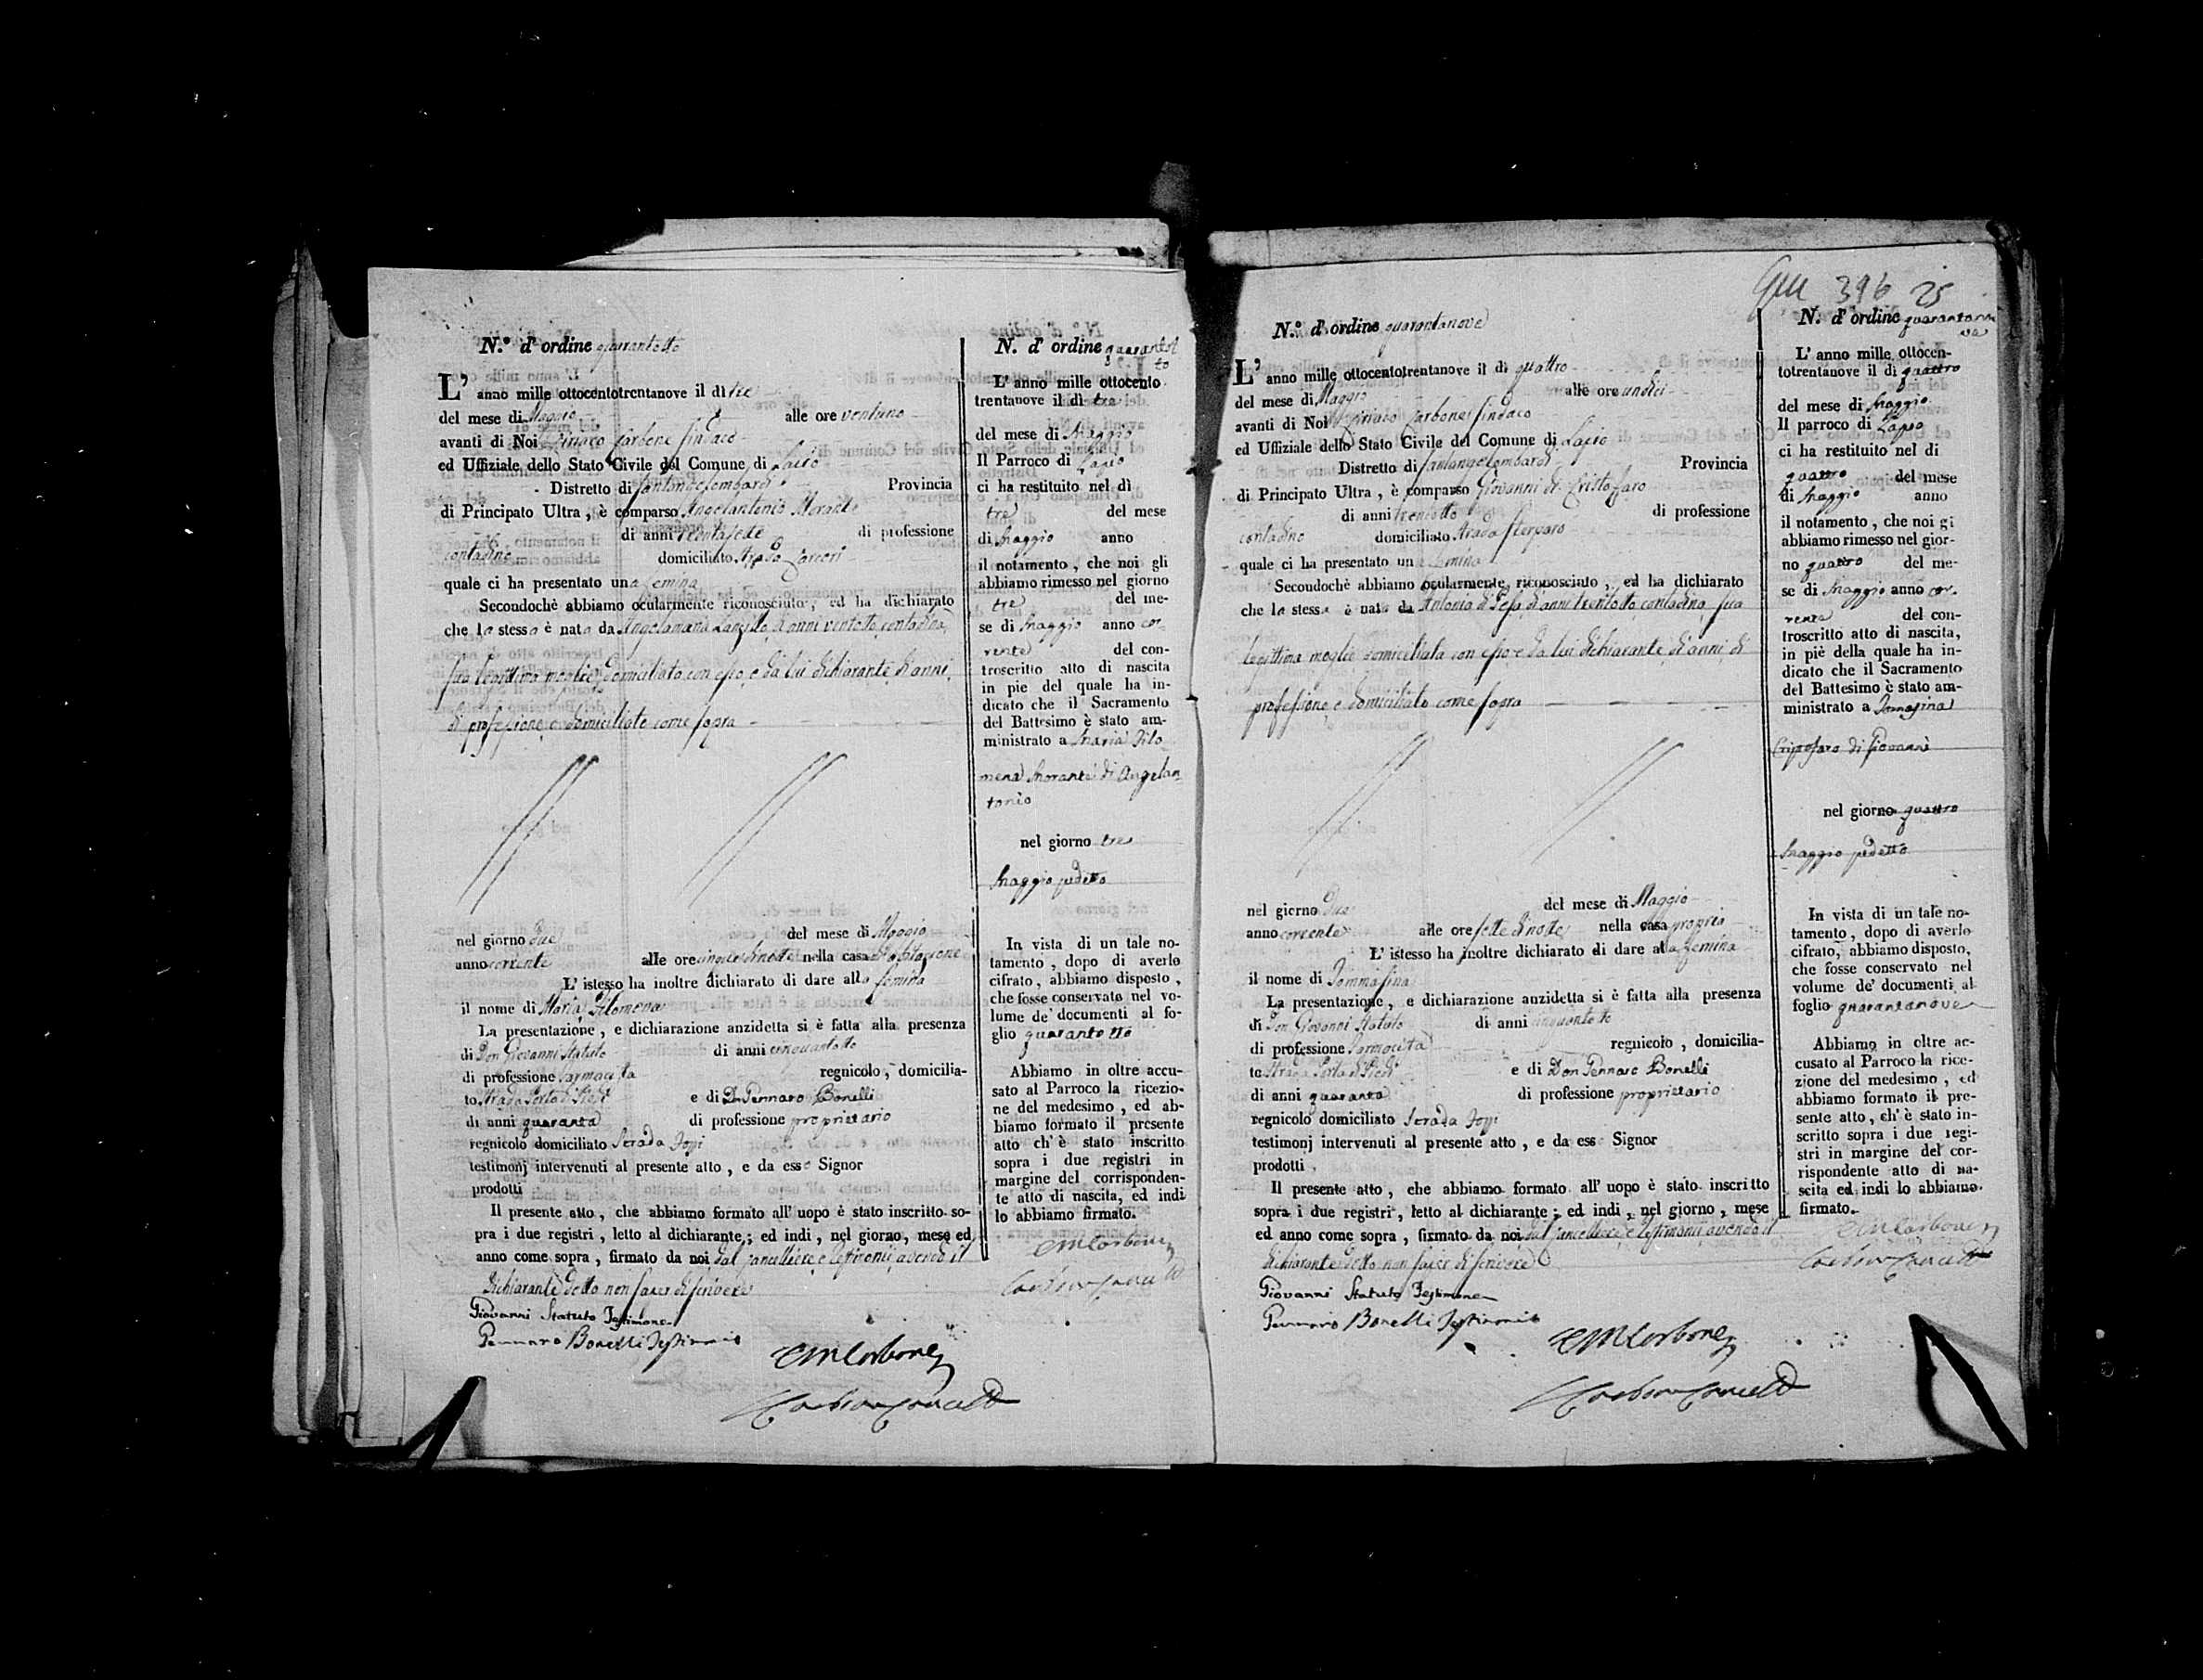 N.º d'ordine quarantotto
L' anno mille ottocentotrentanove il dì tre
del mese di Maggio alle ore ventuno
avanti di Noi Ciriaco Carbone Sindaco
ed Uffiziale dello Stato Civile del Comune di Lapio
Distretto di Santangelombardi Provincia
di Principato Ultra, è comparso Angelantonio Morante
di anni trentasette di professione
contadino domiciliato Strada Carceri
quale ci ha presentato una femina
Secondochè abbiamo ocularmente riconosciuto, ed ha dichiarato
che la stessa è nata da Angelamaria di anni ventotto contadina
sua legittima moglie domiciliata con esso e da lui dichiarante di anni
di professione e domiciliato come sopra
nel giorno due del mese di Maggio
anno corrente alle ore cinque di notte nella casa d'abitazione
L' istesso ha inoltre dichiarato di dare alla femina
il nome di Maria Filomena
La presentazione, e dichiarazione anzidetta si è fatta alla presenza
di Don Giovanni Statuto di anni cinquantotto
di professione Farmacista regnicolo, domicilia-
to Strada Porta di Piedi e di Don Gennaro Bonelli
di anni quaranta di professione proprietario
regnicolo domiciliato Strada
testimonj intervenuti al presente atto, e da esso Signor
prodotti
Il presente atto, che abbiamo formato all' uopo è stato inscritto so-
pra i due registri, letto al dichiarante; ed indi, nel giorno, mese ed
anno come sopra, firmato da noi dal Cancelliere e testimonii avendo il
dichiarante detto non saper di scrivere
Giovanni Statuto Testimone
Gennaro Bonelli Testimonio
CMCarbone
Carbone Cancell
N. d' ordine quarantot
to
L' anno mille ottocento
trentanove il dì tre
del mese di Maggio
Il Parroco di Lapio
ci ha restituito nel dì
tre del mese
di Maggio anno
il notamento, che noi gli
abbiamo rimesso nel giorno
tre del me-
se di Maggio anno cor-
rente del con-
troscritto atto di nascita
in pie del quale ha in-
dicato che il Sacramento
del Battesimo è stato am-
ministrato a Maria Filo
mena Morante di Angelan
tonio
nel giorno tre
Maggio sudetto
In vista di un tale no-
tamento, dopo di averlo
cifrato, abbiamo disposto,
che fosse conservato nel vo-
lume de' documenti al fo-
glio quarantotto
Abbiamo in oltre accu-
sato al Parroco la ricezio-
ne del medesimo, ed ab-
biamo formato il presente
atto ch' è stato inscritto
sopra i due registri in
margine del corrisponden-
te atto di nascita, ed indi
lo abbiamo firmato.
CMCarbone
Carbone Cancell
396 25
N.º d' ordine quarantanove
L' anno mille ottocentotrentanove il dì quattro
del mese di Maggio alle ore undici
avanti di Noi Ciriaco Carbone Sindaco
ed Uffiziale dello Stato Civile del Comune di Lapio
Distretto di Santangelombardi Provincia
di Principato Ultra, è comparso Giovanni di Cristofaro
di anni trentotto di professione
contadino domiciliato Strada Sterparo
quale ci ha presentato una femina
Secondochè abbiamo ocularmente riconosciuto, ed ha dichiarato
che la stessa è nata da Antonia di anni trentotto contadina sua
legittima moglie domiciliata con esso e da lui dichiarante di anni di
professione e domiciliato come sopra
nel giorno due del mese di Maggio
anno corrente alle ore sette di notte nella casa propria
L' istesso ha inoltre dichiarato di dare alla femina
il nome di Tommasina
La presentazione, e dichiarazione anzidetta si è fatta alla presenza
di Don Giovanni Statuto di anni cinquantotto
di professione Farmacista regnicolo, domicilia-
to Strada Porta di Piedi e di Don Gennaro Bonelli
di anni quaranta di professione proprietario
regnicolo domiciliato Strada
testimonj intervenuti al presente atto, e da esso Signor
prodotti
Il presente atto, che abbiamo formato all' uopo è stato inscritto
sopra i due registri, letto al dichiarante; ed indi, nel giorno, mese
ed anno come sopra, firmato da noi dal Cancelliere e testimonii avendo il
dichiarante detto non saper di scrivere
Giovanni Statuto Testimone
Gennaro Bonelli Testimonio
CMCarbone
Carbone Cancell
N. d' ordine quarantano
ve
L' anno mille ottocen-
totrentanove il dì quattro
del mese di Maggio
Il parroco di Lapio
ci ha restituito nel di
quattro del mese
di Maggio anno
il notamento, che noi gi
abbiamo rimesso nel gior-
no quattro del me-
se di Maggio anno cor-
rente del con-
troscritto atto di nascita,
in piè della quale ha in-
dicato che il Sacramento
del Battesimo è stato am-
ministrato a Tomasina
Cristofaro di Giovanni
nel giorno quattro
Maggio sudetto
In vista di un tale no-
tamento, dopo di averlo
cifrato, abbiamo disposto,
che fosse conservato nel
volume de' documenti al
foglio quarantanove
Abbiamo in oltre ac-
cusato al Parroco la rice-
zione del medesimo, ed
abbiamo formato il pre-
sente atto, ch' è stato in-
scritto sopra i due regi-
stri in margine del cor-
rispondente atto di na-
scita ed indi lo abbiamo
firmato.
CMCarbone
Carbone Cancell